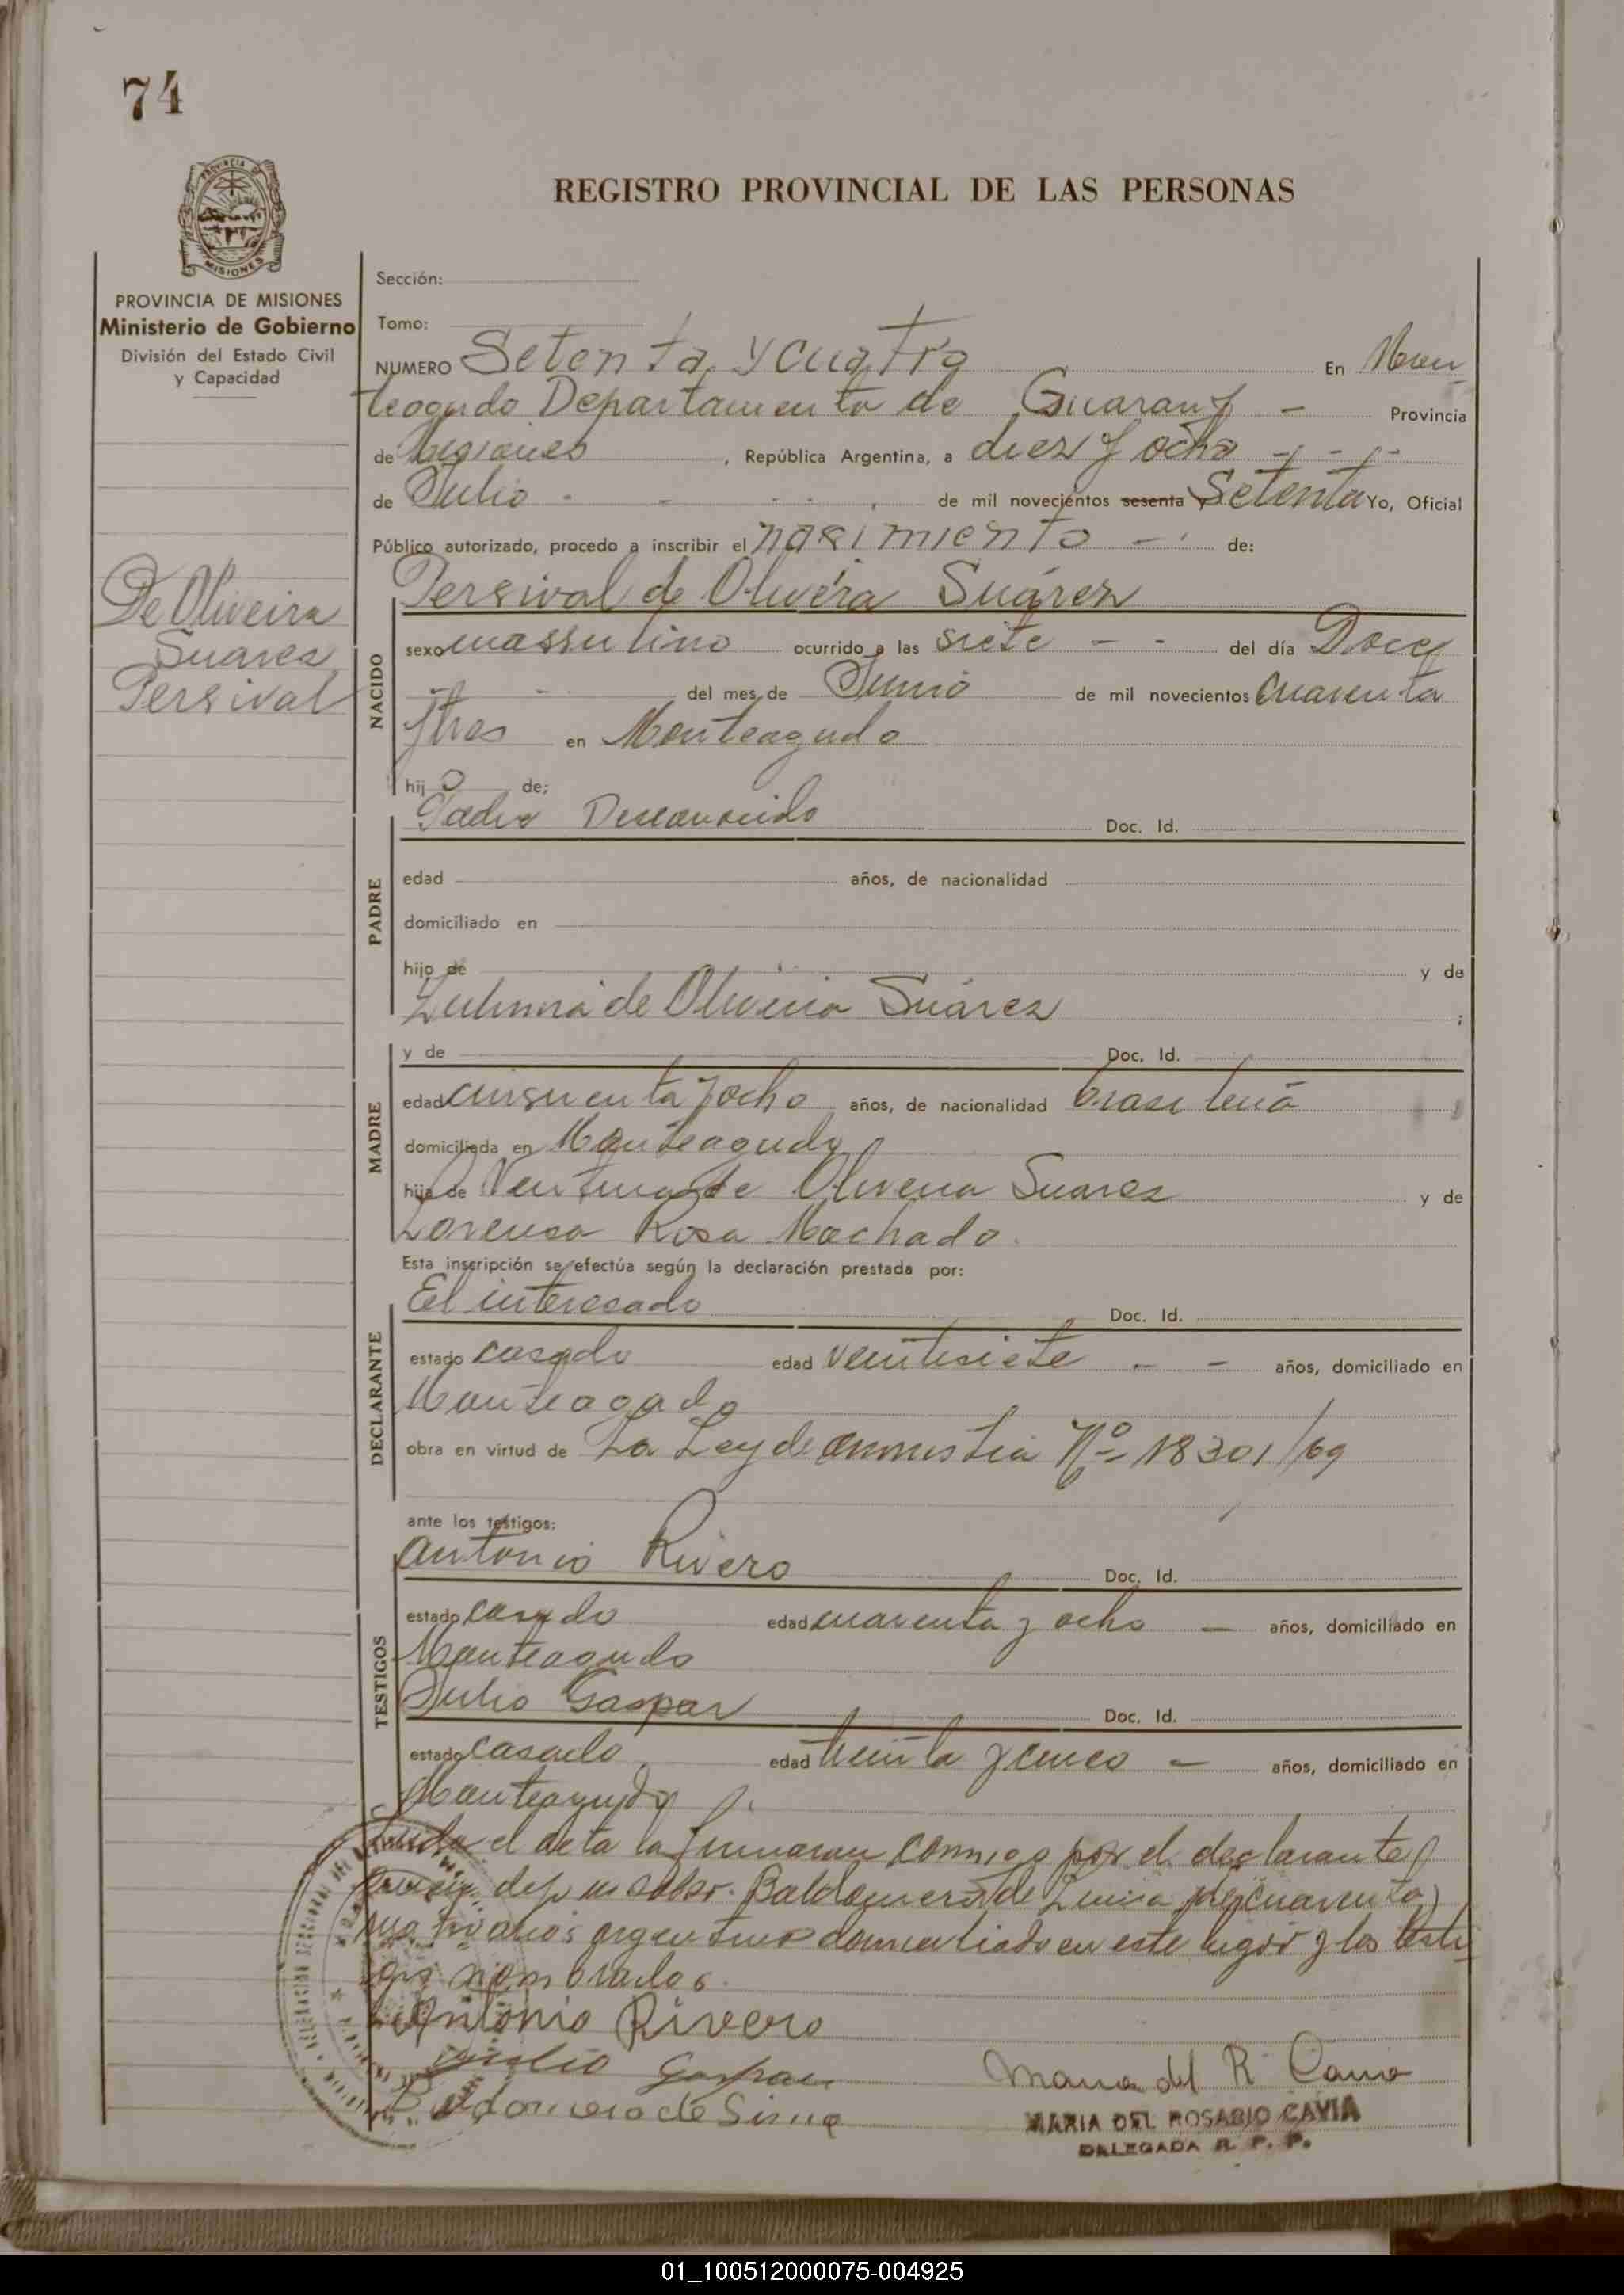 74
PROVINCIA DE
MISIONES
REGISTRO PROVINCIAL DE LAS PERSONAS
PROVINCIA DE MISIONES
Ministerio de Gobierno
División del Estado Civil
y Capacidad
De Oliveira
Suarez
Persival
Sección:
Tomo:
NUMERO Setenta y cuatro En Mon
teagudo Departamento de Guaraní - Provincia
de Misiones, República Argentina, a diez y ocho - - -
de Julio - - de mil novecientos sesenta y Setenta Yo, Oficial
Público autorizado, procedo a inscribir el nasimiento - de:
Persival de Oliveira Suárez
NACIDO
sexo massulino ocurrido a las siete - - del día Doce
- - del mes de Junio de mil novecientos cuarenta
y tres en Monteagudo
hijo de:
Padre Desconosido Doc. Id.
PADRE
edad años, de nacionalidad
domiciliado en
hijo de y de
de Oliveira Suárez ;
y de Doc. Id.
MADRE
edad cinsuenta y ocho años, de nacionalidad brasileña
domiciliada en Monteagudo
hija de Ventura de Oliveira Suarez y de
Lorensa Rosa Machado.
Esta inscripción se efectúa según la declaración prestada por:
El interesado Doc. Id.
DECLARANTE
estado casado edad veintisiete - - años, domiciliado en
Monteagudo
obra en virtud de La Ley de amnistia Nº 18301/69
ante los testigos:
Antonio Rivero Doc. Id.
TESTIGOS
estado casado edad cuarenta y ocho - años, domiciliado en
Monteagudo
Julio Gaspar Doc. Id.
estado casado edad treinta y cinco - años, domiciliado en
Monteagudo
el acta la firmaran conmigo por el declarante
saber. Baldomero de Lima de cuarenta y
años argentino domiciliado en este lugar y los testi
gos nombrados.
Antonio Rivero
Julio Gaspar
Baldomero de Sima
Maria del R Cavia
MARIA DEL ROSARIO CAVIA
DELEGADA R. P. P.
01_100512000075-004925